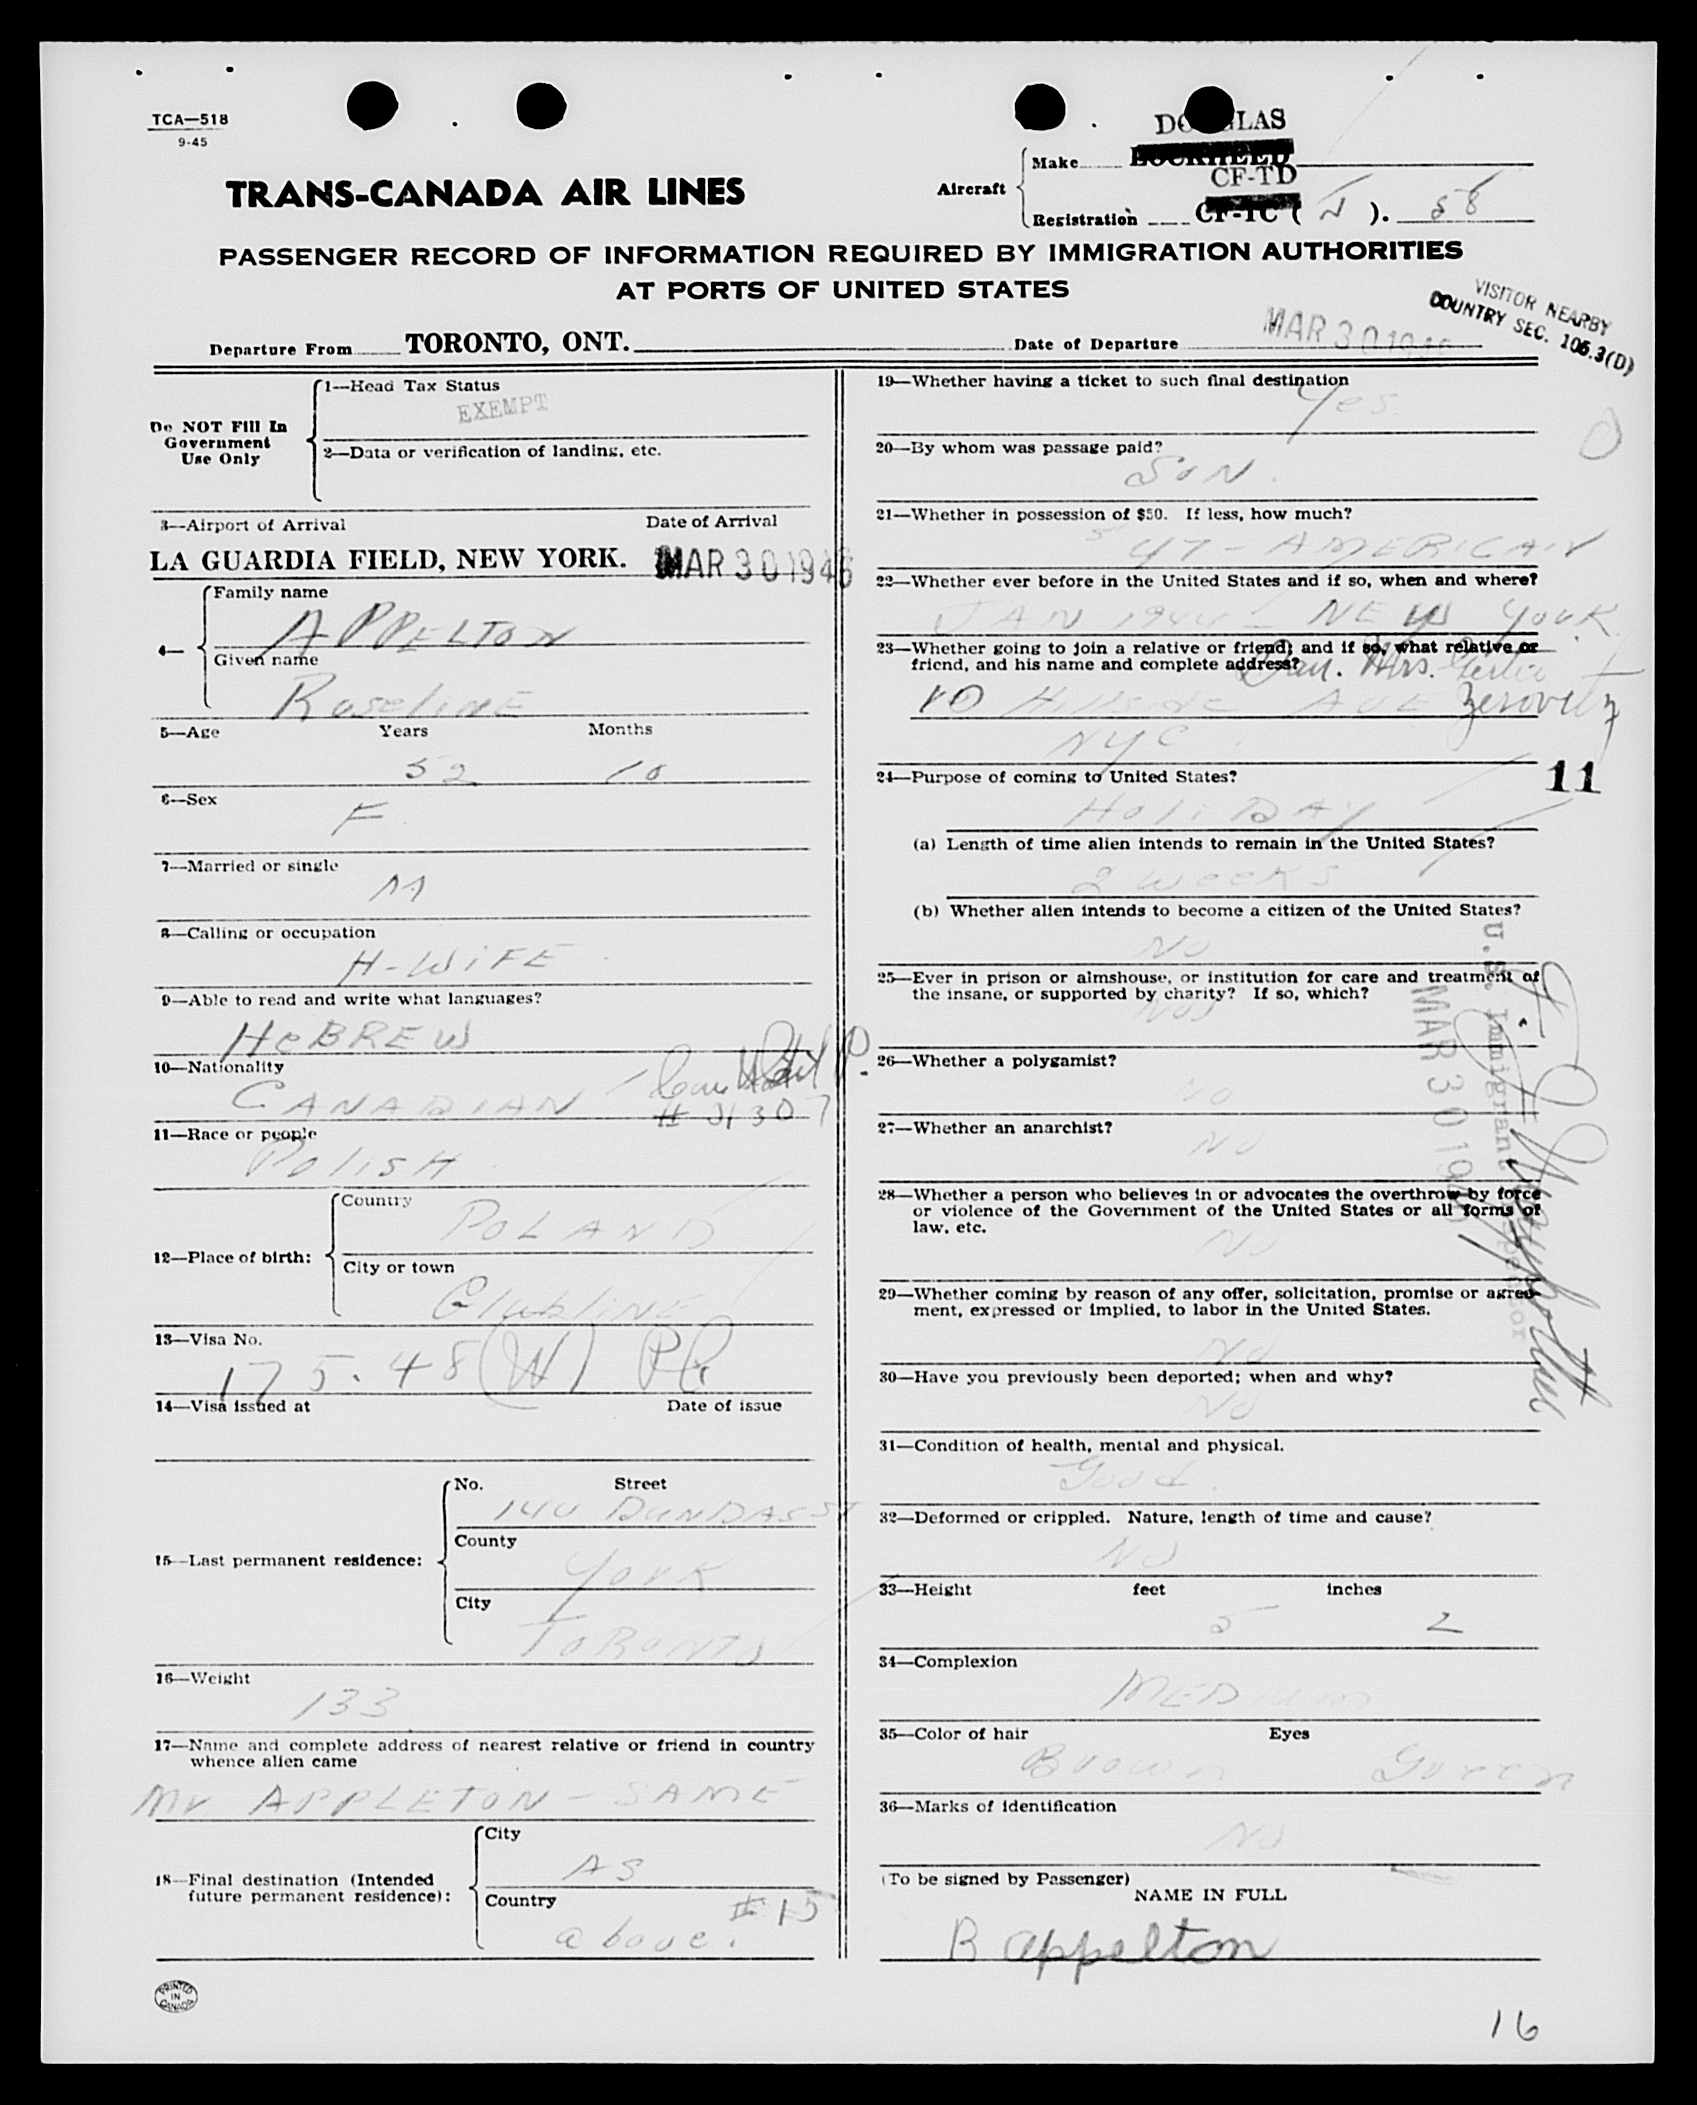 TCA—518
9-45
DOUGLAS
Aircraft
Make LOCKHEED
CF-TD
Registration CF-TC ( N ). 58
TRANS-CANADA AIR LINES
PASSENGER RECORD OF INFORMATION REQUIRED BY IMMIGRATION AUTHORITIES
AT PORTS OF UNITED STATES
VISITOR NEARBY
COUNTRY SEC. 105.3(D)
Departure From TORONTO, ONT. Date of Departure MAR 30 1946
Do NOT Fill In
Government
Use Only
1—Head Tax Status
EXEMPT
2—Data or verification of landing, etc.
3—Airport of Arrival Date of Arrival
LA GUARDIA FIELD, NEW YORK. MAR 30 1946
4—
Family name
APPELTON
Given name
Roseline
5—Age Years Months
52 10
6—Sex
F
7—Married or single
M
8—Calling or occupation
H-WIFE
9—Able to read and write what languages?
HeBREW
10—Nationality
CANADIAN
11—Race or people
POLISH
12—Place of birth:
Country
POLAND
City or town
13—Visa No.
175.48 (W)
14—Visa issued at Date of issue
15—Last permanent residence:
No. Street
140 DUNDAS ST
County
York
City
TORONTO
16—Weight
133
17—Name and complete address of nearest relative or friend in country
whence alien came
Mr APPLETON - SAME
18—Final destination (Intended
future permanent residence):
City
AS
Country
# 15
above.
PRINTED
IN
CANADA
19—Whether having a ticket to such final destination
Yes
20—By whom was passage paid?
SON.
21—Whether in possession of $50. If less, how much?
$47 - AMERICAN
22—Whether ever before in the United States and if so, when and where?
JAN 1944 - NEW YORK.
23—Whether going to join a relative or friend; and if so, what relative or
friend, and his name and complete address?
Mrs.
10 Hillside AVE Zerovitz
NYC.
24—Purpose of coming to United States?
HOLIDAY
11
(a) Length of time alien intends to remain in the United States?
2 weeks
(b) Whether alien intends to become a citizen of the United States?
No
25—Ever in prison or almshouse, or institution for care and treatment of
the insane, or supported by charity? If so, which?
No
26—Whether a polygamist?
No
27—Whether an anarchist?
No
28—Whether a person who believes in or advocates the overthrow by force
or violence of the Government of the United States or all forms of
law, etc.
No
29—Whether coming by reason of any offer, solicitation, promise or agree-
ment, expressed or implied, to labor in the United States.
No
30—Have you previously been deported; when and why?
No
31—Condition of health, mental and physical.
Good.
32—Deformed or crippled. Nature, length of time and cause?
No
33—Height feet inches
5 2
34—Complexion
MEDium
35—Color of hair Eyes
Brown Green
36—Marks of identification
No
(To be signed by Passenger)
NAME IN FULL
R appelton
U.S. Immigrant Inspector
MAR 30 1946
16